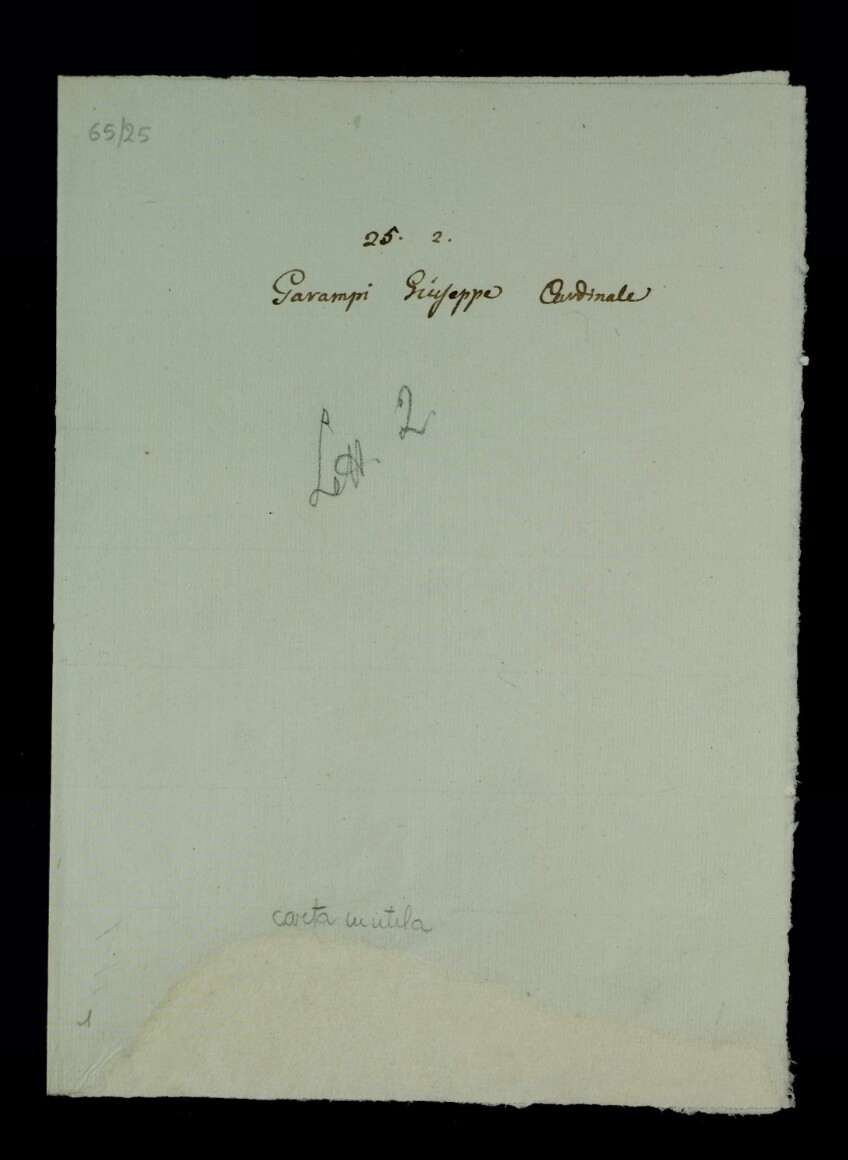 65/25
25. 2.
Garampi Giuseppe Cardinale
Lett. 2
carta mutila
1